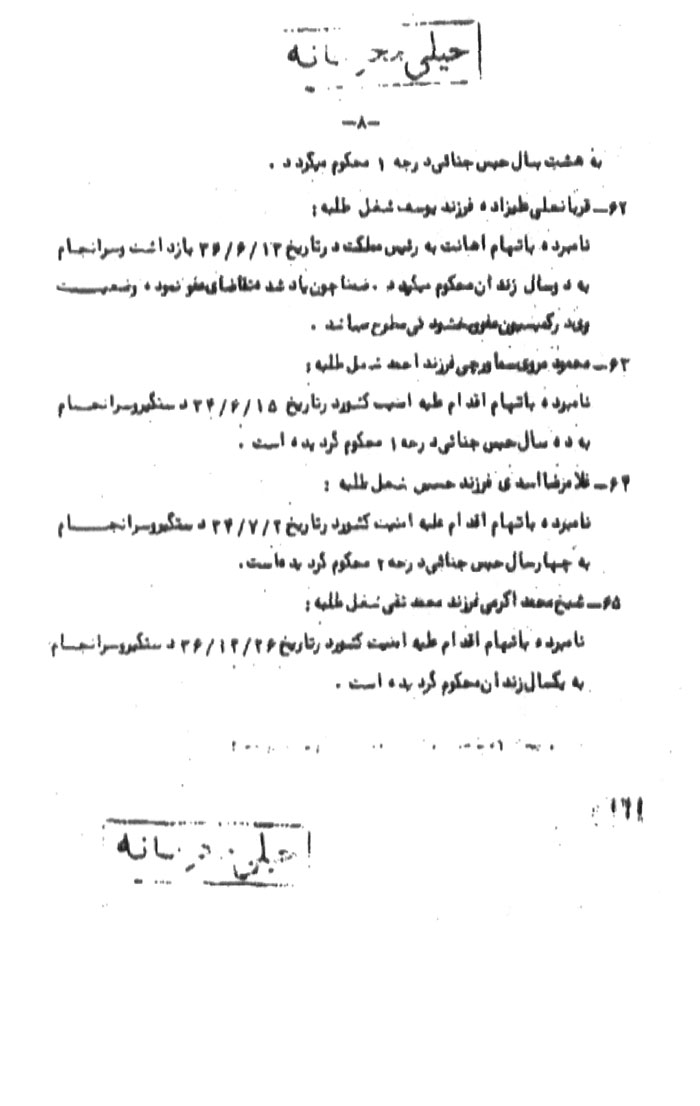 خیلی محرمانه
-۸-
به هشت سال حبس جنائی درجه ۱ محکوم میگردد .
۶۲ـ قربانعلی علیزاده فرزند یوسف شغل طلبه :
نامبرده باتهام اهانت به رئیس مملکت درتاریخ ۳۶/۶/۱۳ بازداشت وسرانجام
به دوسال زندان محکوم میگردد . ضمنا چون یاد شده تقاضای عفو نموده وضعیت
وی در کمیسیون عفو بخشودگی مطرح میباشد .
۶۳ـ محمود مروی سماورچی فرزند احمد شغل طلبه :
نامبرده باتهام اقدام علیه امنیت کشور درتاریخ ۳۴/۶/۱۵ دستگیر وسرانجام
به ده سال حبس جنائی درجه ۱ محکوم گردیده است .
۶۴ـ غلامرضا اسدی فرزند حسین شغل طلبه :
نامبرده باتهام اقدام علیه امنیت کشور درتاریخ ۳۴/۷/۲ دستگیر وسرانجام
به چهارسال حبس جنائی درجه ۲ محکوم گردیده است .
۶۵ـ شیخ محمد اکرمی فرزند محمد تقی شغل طلبه :
نامبرده باتهام اقدام علیه امنیت کشور درتاریخ ۳۶/۱۲/۲۶ دستگیر وسرانجام
به یکسال زندان محکوم گردیده است .
خیلی محرمانه